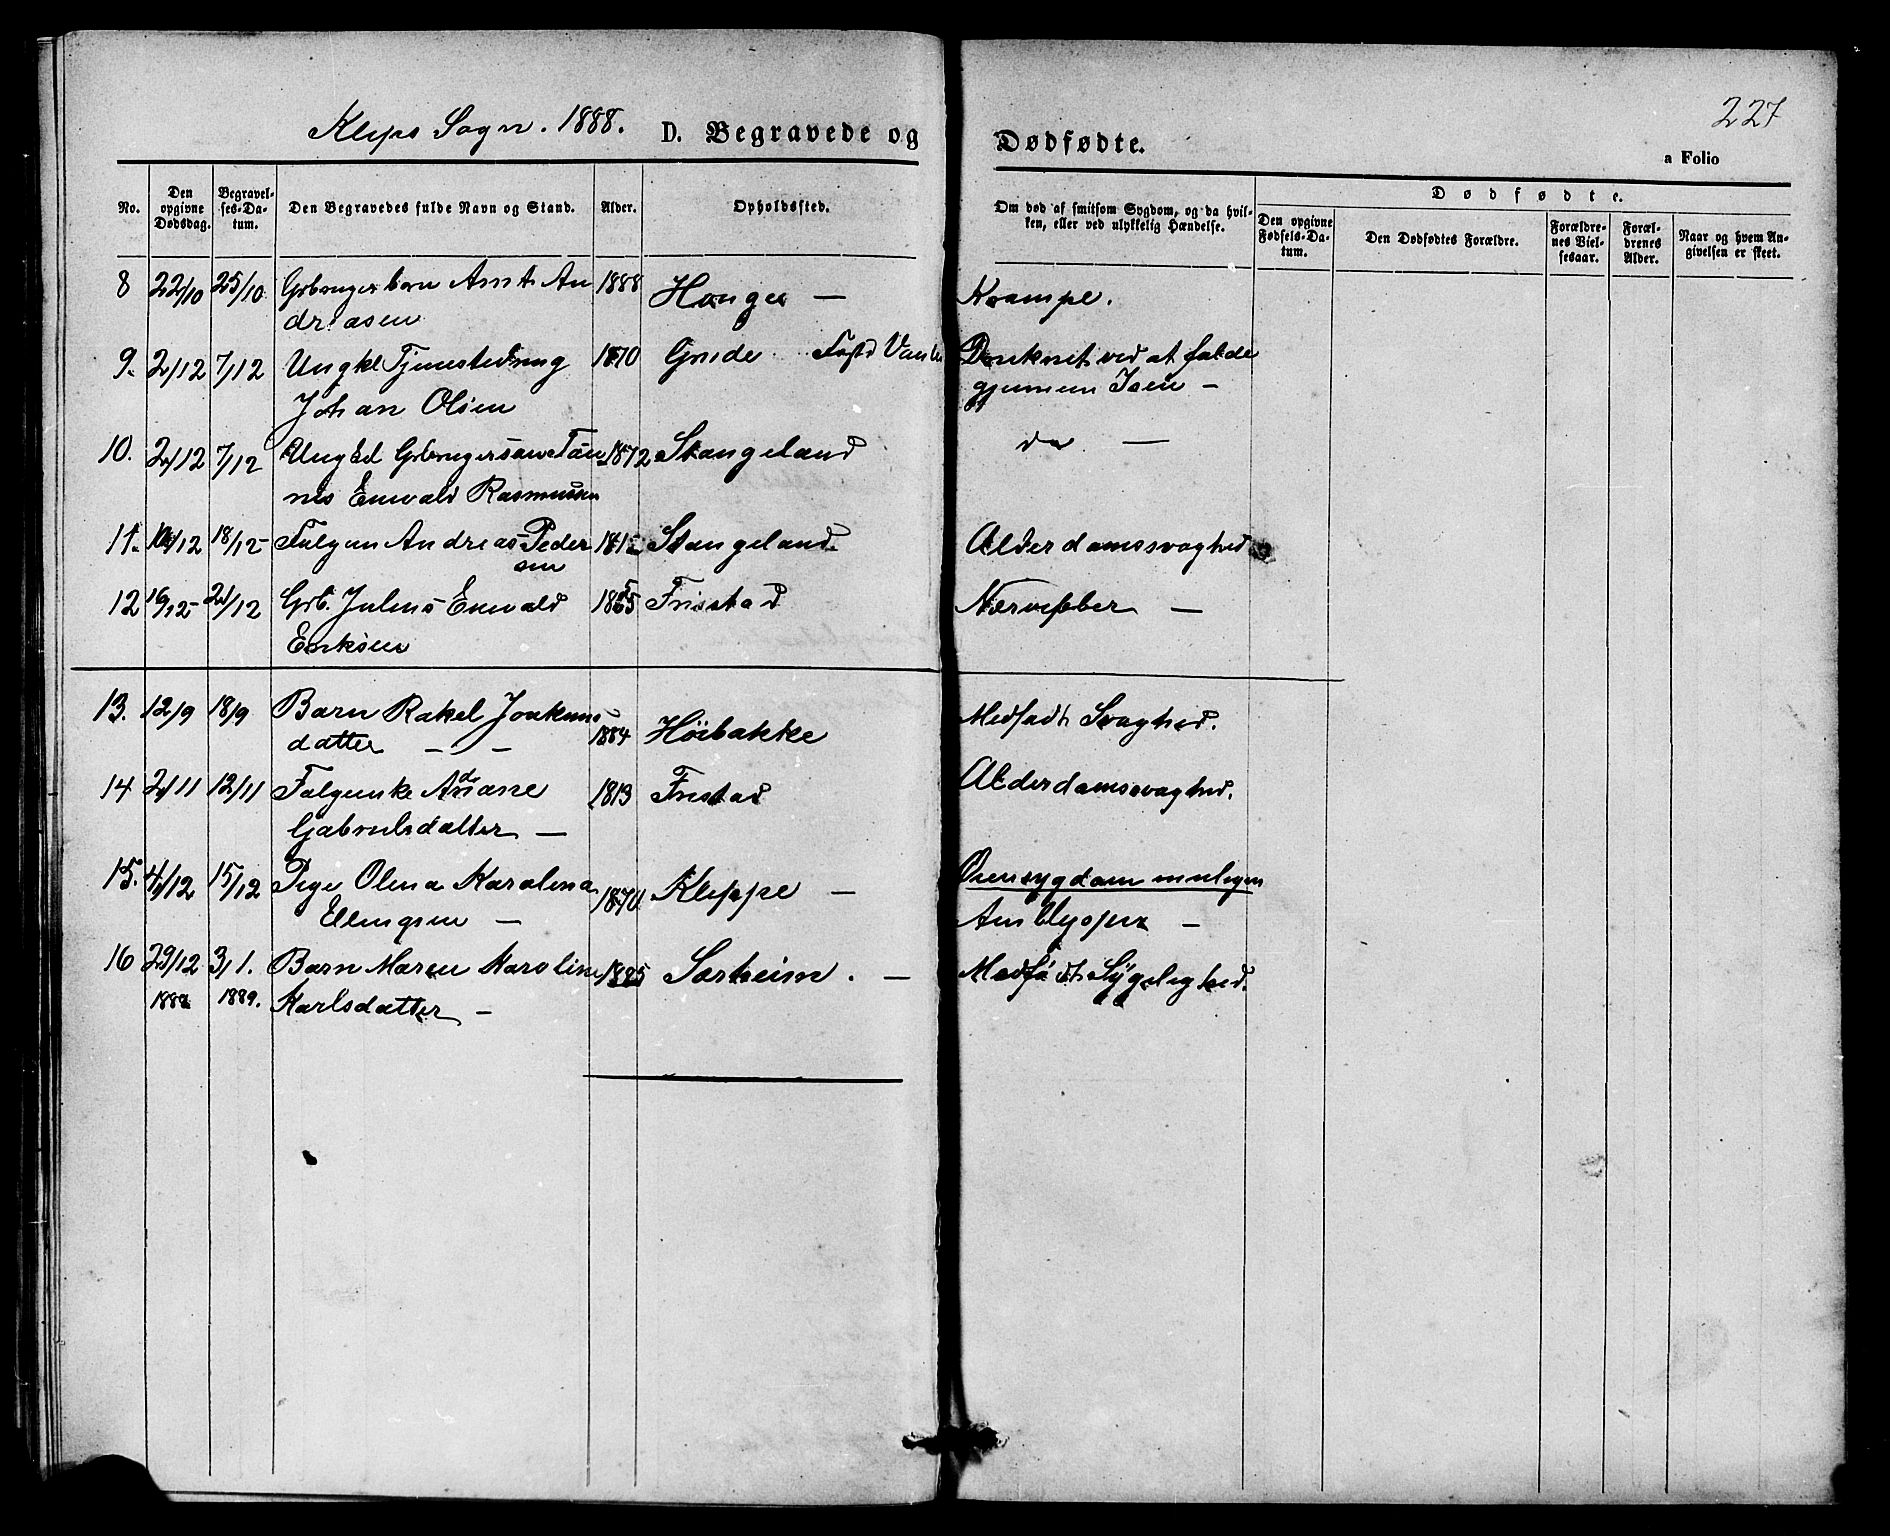 Kleps Sogn. 1888. D. Begravede og Dødfødte. 227
a Folio
No. Den opgivne Dødsdag. Begravelses-Datum. Den Begravedes fulde Navn og Stand. Alder. Opholdssted. Om død af smitsom Sygdom, og da hvilken, eller ved ulykkelig Hændelse. Dødfødte.
Den opgivne Fødsels-Datum. Den Dødfødtes Forældre. Forældrenes Vielsesaar. Forældrenes Alder. Naar og hvem Angivelsen er skeet.
8 22/10 25/10 Grbrugerbarn Arnt An 1888 Hauge — Krampe.
driasen
9. 2/12 7/12 Ungkl Tjenestedreng 1870 Grude Druknet ved at falde
Johan Olsen gjennem Isen —
10. 2/12 7/12 Ungkl Grbrugersøn Tøn 1872 Stangeland do —
nes Enevald Rasmussen
11. 12/12 18/12 Folgem Andreas Peder 1815 Stangeland. Alderdomssvaghed
sen
12 16/12 21/12 Grb. Julius Enevald Friestad Nervefeber —
Eriksen
13. 12/9 18/9 Barn Rakel Joakims 1884 Høibakke Medfødt Svaghed.
datter — —
14 2/11 12/11 Folgeenke Andriane 1813 Friestad Alderdomssvaghed.
Gabrielsdatter —
15. 4/12 15/12 Pige Olena Karolina 1870 Kleppe — Øiensygdom muligen
Ellingsen — Amblyopia —
16 29/12 3/1. Barn Maren Karoline 1885 Sørheim. — Medfødt Sygelighed.
1888 1889. Karlsdatter —